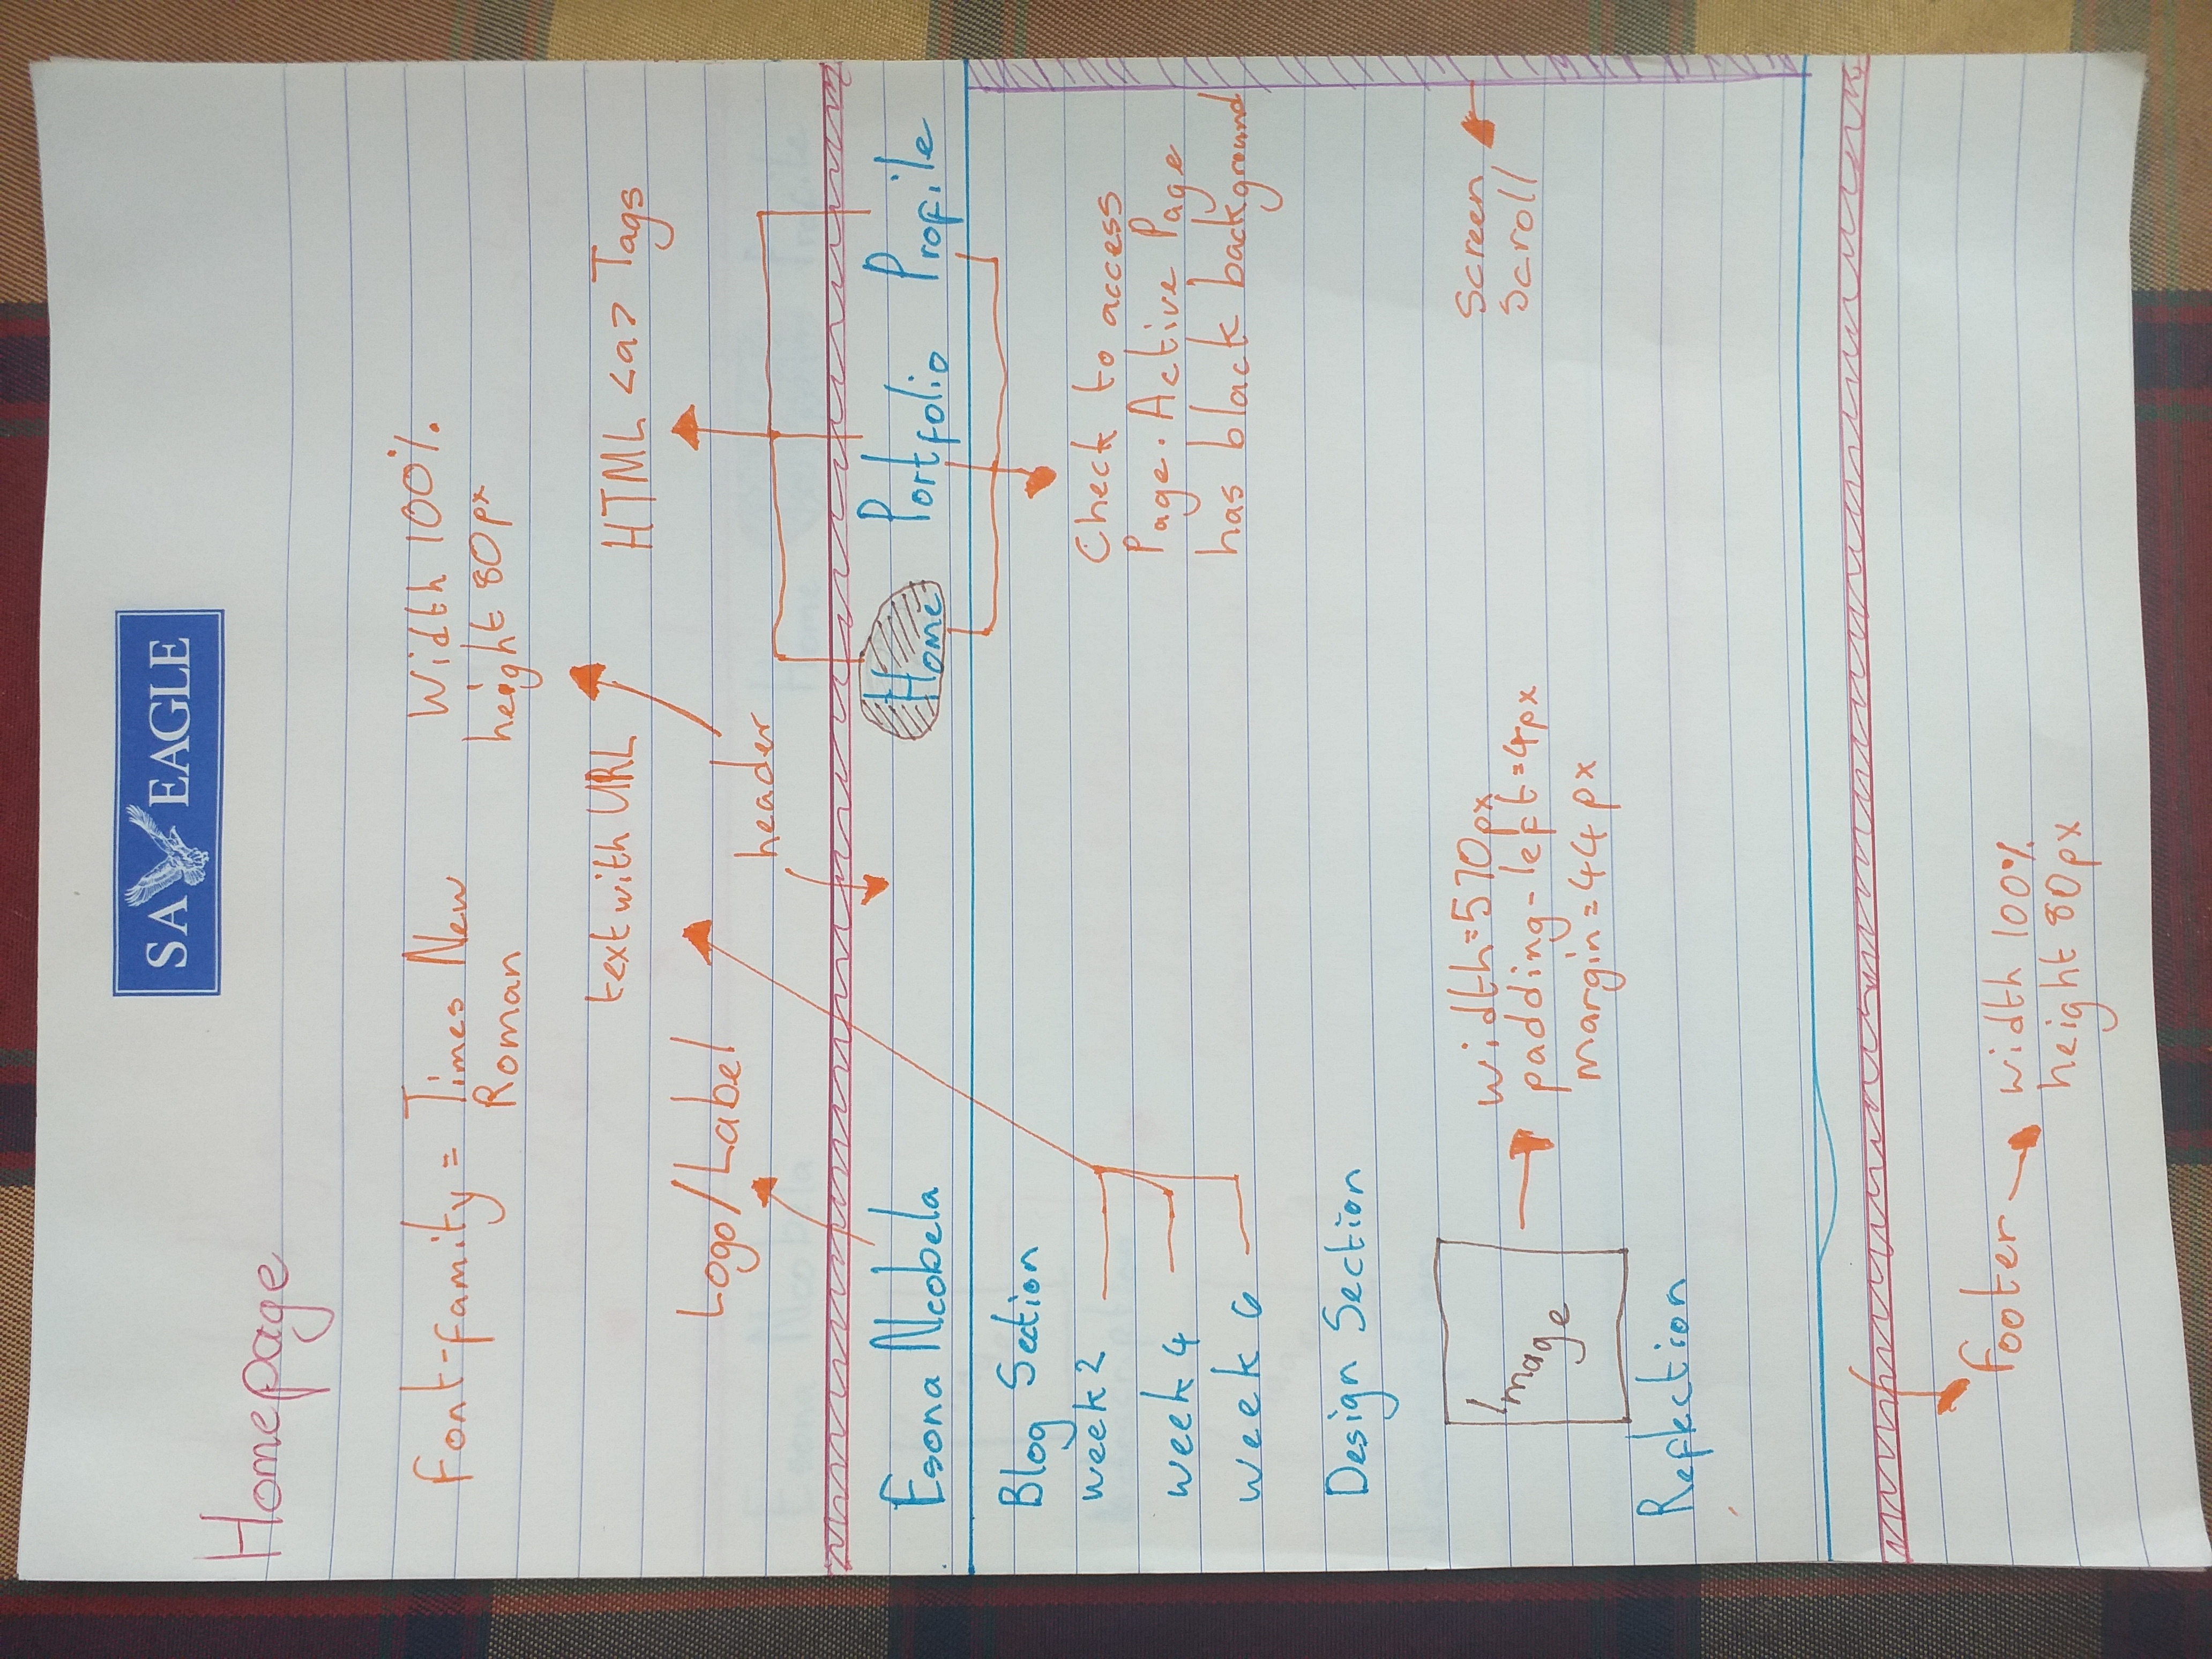 SA EAGLE
Homepage
Font-family = Times New
Roman
Width 100%
height 80px
text with URL
HTML <a> Tags
Logo/Label
header
Esona Ncobela
Home Portfolio Profile
Blog Section
week 2
week 4
week 6
Check to access
Page. Active Page
has black background
Design Section
Image
width=570px
padding-left=4px
margin=44px
Screen
Scroll
Reflection
footer
width 100%
height 80px